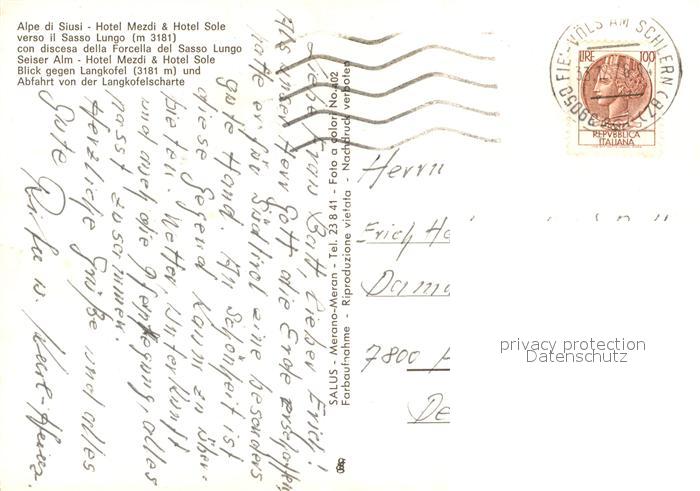 Alpe di Siusi - Hotel Mezdi & Hotel Sole
verso il Sasso Lungo (m 3181)
con discesa della Forcella del Sasso Lungo
Seiser Alm - Hotel Mezdi & Hotel Sole
Blick gegen Langkofel (3181 m) und
Abfahrt von der Langkofelscharte
Liebe Frau Bott, lieber Erich!
Als unser Herr Gott die Erde erschaffen,
hatte er für Südtirol eine besonders
gute Hand. An Schönheit ist
diese Gegend kaum zu über-
bieten. Wetter, Unterkunft
und auch die Pflegung, alles
passt zusammen.
Herzliche Grüße und alles
Gute
u. Karl-Heinz
SALUS - Merano-Meran - Tel. 23 8 41 - Foto a colori No. 402
Farbaufnahme - Riproduzione vietata - Nachdruck verboten
39050 FIE'-VÖLS AM SCHLERN (BZ)
LIRE 100
REPVBBLICA
ITALIANA
Herrn
Erich
7800
privacy protection
Datenschutz